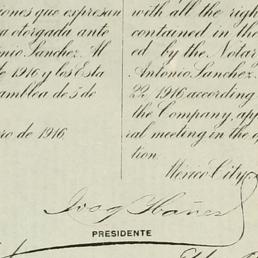 iones que expresan
a otorgada ante
onio Sanchez. Al
e 1916 y los Esta
amblea de 5 de
ro de 1916
with all the righ
contained in the
ed by the Notar
Antonio Sanchez.
22 1916 according
the Company, app
ral meeting in the
tion.
Mexico City
PRESIDENTE